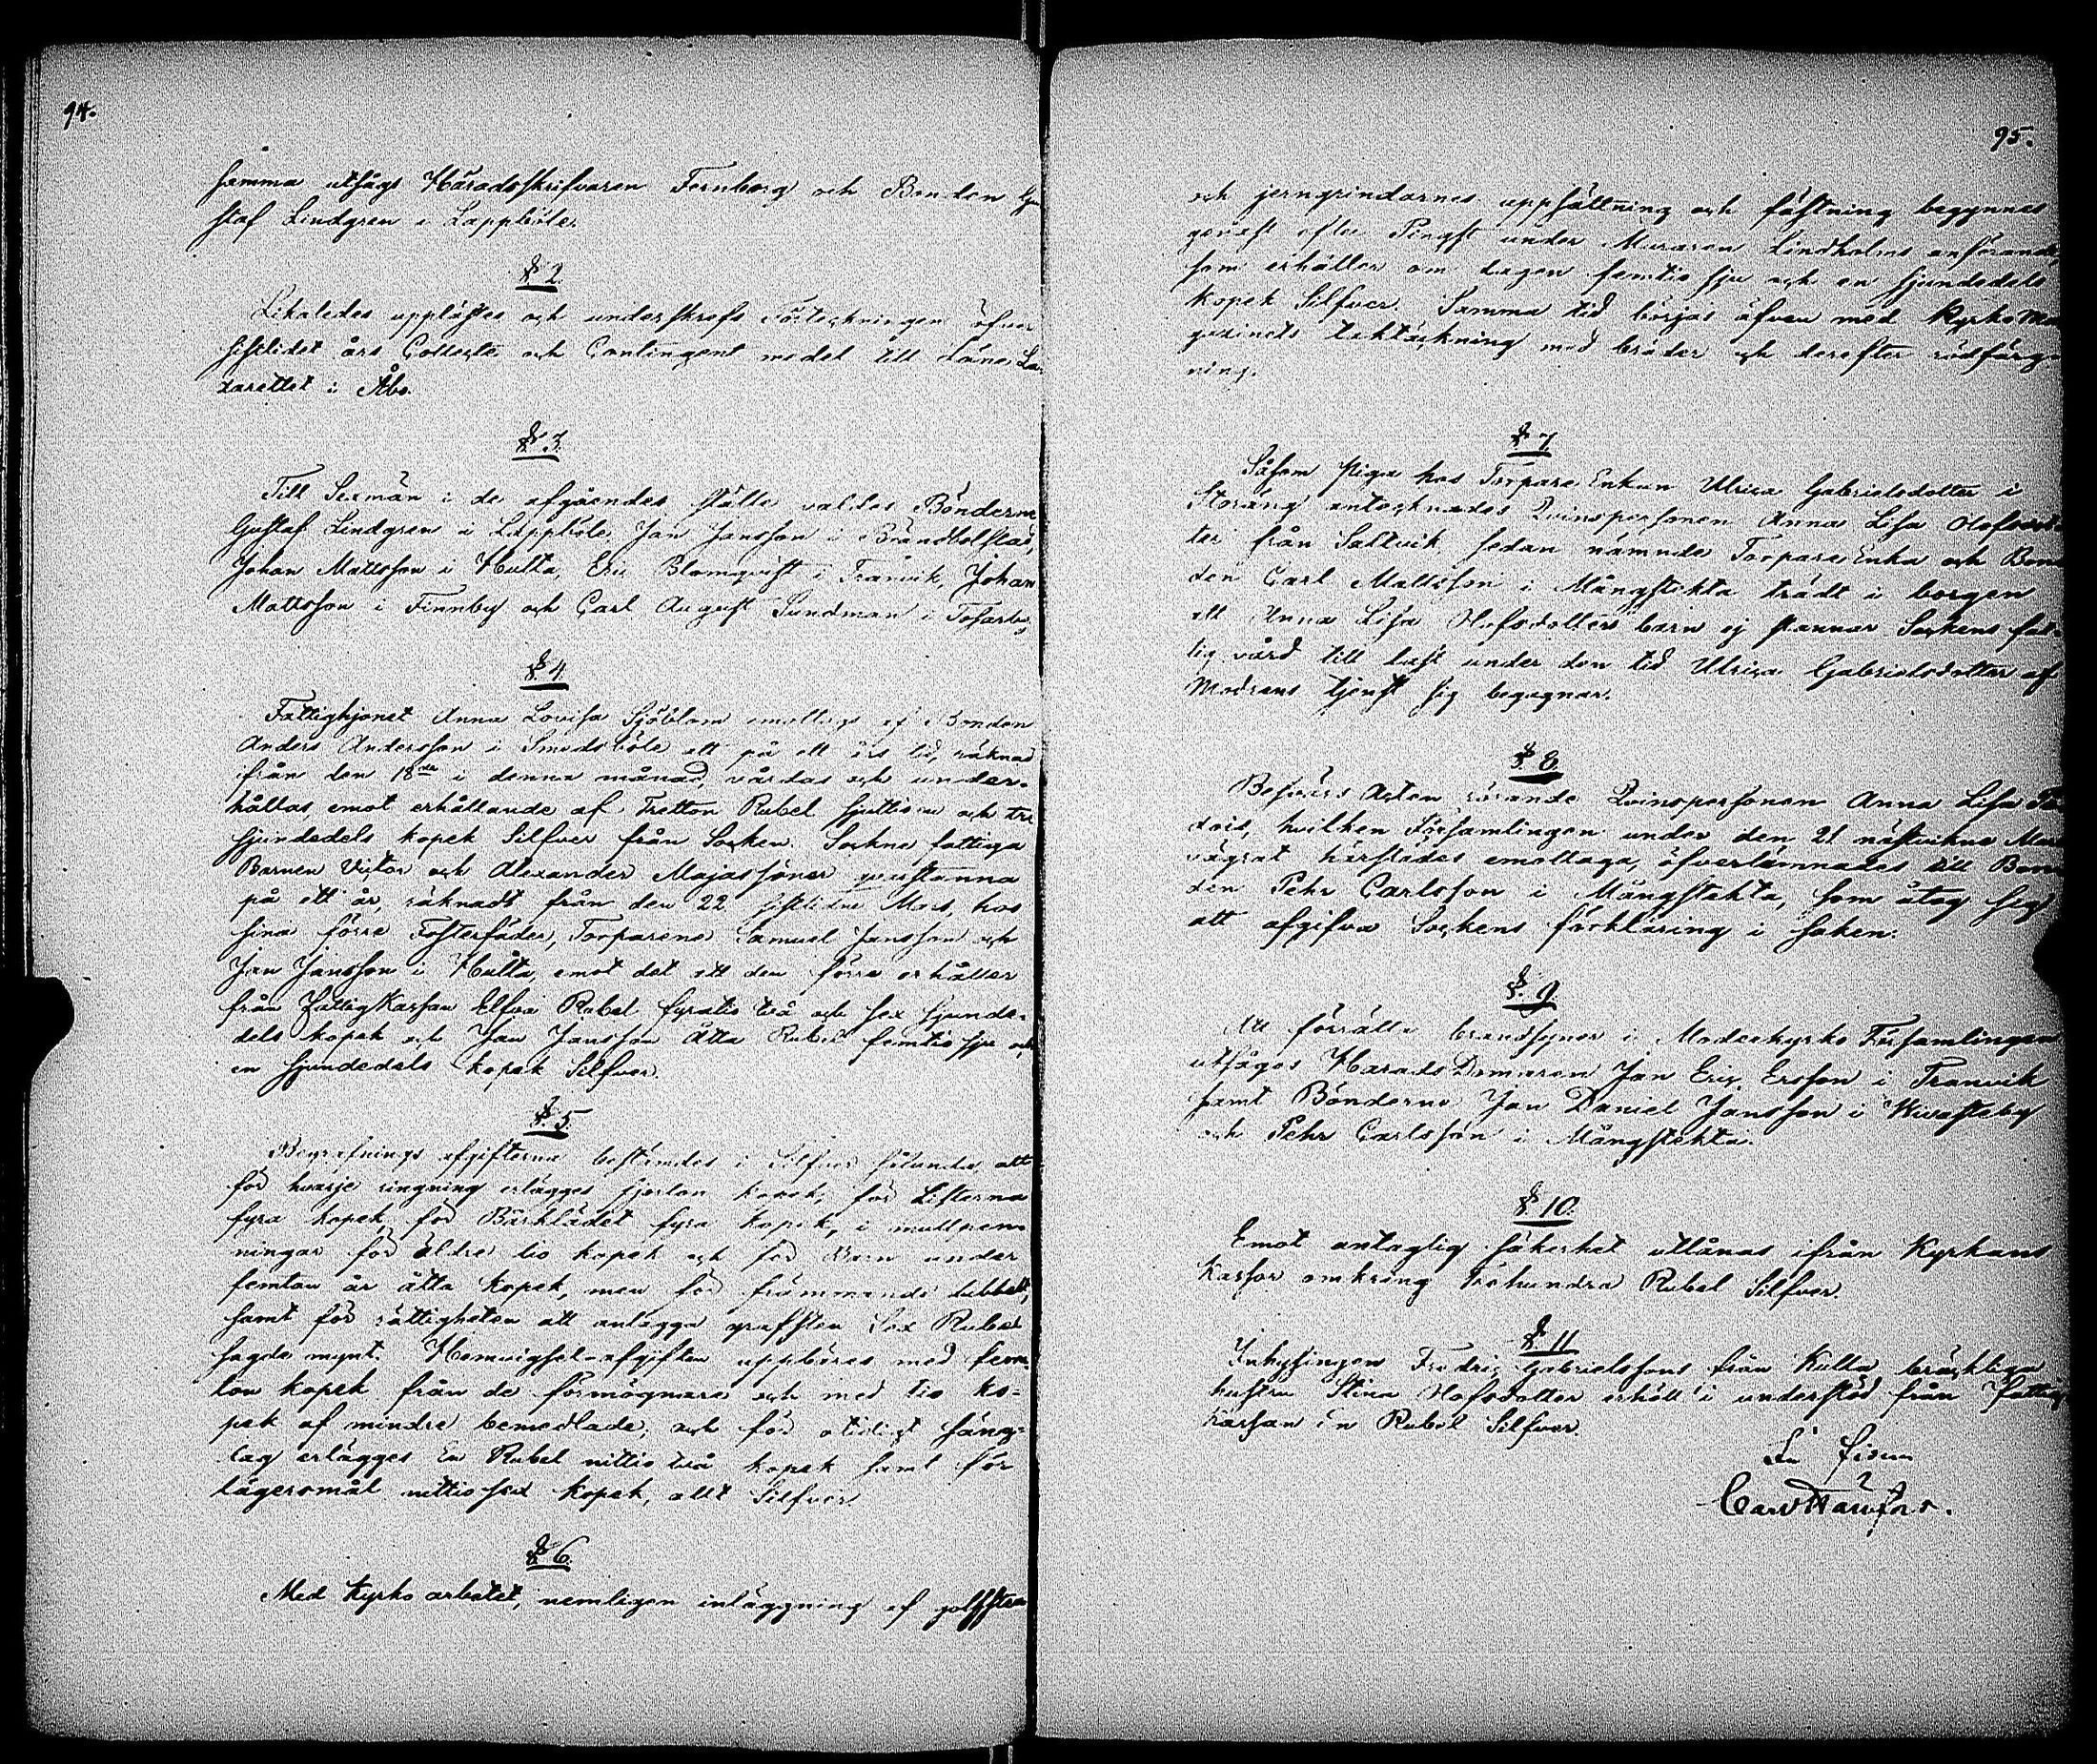 94.
samma utsågs Häradsskrifvaren Fernberg och Bonden Gu
staf Lindgren i Lappböle.
§ 2.
Likaledes upplästes och underskrefs Förteckningen öfver
sistlidet års Collecte och Contingent medel till Läns La
zarettet i Åbo.
§ 3.
Till Sexmän i de afgåendes ställe valdes Bönderne
Gustaf Lindgren i Lappböle, Jan Jansson i Brändbolstad,
Johan Mattsson i Hulta, Eric Blomqvist i Tranvik, Johan
Mattsson i Finnby och Carl August Sundman i Tosarby.
§ 4.
Fattighjonet Anna Lovisa Sjöblom emottogs af Bonden
Anders Andersson i Smedsböle att på ett års tid, räknad
ifrån den 18de i denna månad, vårdas och under-
hållas, emot erhållande af Tretton Rubel sjuttio och tre
sjundedels kopek Silfver från Socken. Sockne fattiga
Barnen Victor och Alexander Majassöner qvarstanna
på ett år, räknadt från den 22 sistlidne Mars, hos
sina förre Fosterfäder, Torparene Samuel Jansson och
Jan Jansson i Hulta, emot det att den förre erhåller
från Fattig Kassan Elfva Rubel fyratio två och sex sjunde-
dels kopek och Jan Jansson Åtta Rubel femtio sju och
en sjundedels kopek Silfver.
§. 5.
Begrafnings afgifterna bestämdes i Silfver sålunda, att
för hvarje ringning erlägges fjorton kopek, för Listerna
fyra kopek, för Bårklädet fyra kopek, i mullpen-
ningar för äldre tio kopek och för Barn under
femton år åtta kopek, men för främmande dubbelt,
samt för rättigheten att anlägga grafsten Sex Rubel
sagde mynt. Hemvigsel-afgiften uppbäres med fem-
ton kopek från de förmögnare och med tio ko-
pek af mindre bemedlade, och för otidigt säng-
lag erlägges En Rubel nittio två kopek samt för
lägersmål nittiosex kopek, allt Silfver.
§ 6.
Med Kyrko arbetet, nemligen inläggning af golfsten
95.
och jerngrindarnes uppsättning och fästning begynnes
genast efter Pingst under Muraren Lindholms anförande,
som erhåller om dagen femtio sju och en sjundedels
kopek Silfver. Samma tid börjas äfven med Kyrko Ma
gazinets taktäckning med bräder och derefter rödfärg
ning.
§ 7.
Såsom Piga hos Torpare Enkan Ulrica Gabrielsdotter i
Storäng antecknades Qvinspersonen Anna Lisa Olofsdot
ter från Saltvik, sedan nämnde Torpare Enka och Bon
den Carl Mattsson i Mångstekta trädt i borgen
att Anna Lisa Olofsdotters barn ej stannar Sockens fat-
tig vård till last under den tid Ulrica Gabrielsdotter af
Modrens tjenst sig begagnar.
§. 8.
Besvärs Acten rörande Qvinspersonen Anna Lisa
hvilken Församlingen under den 21 nästvikne Mars
vägrat härstädes emottaga, öfverlämnades till Bon
den Pehr Carlsson i Mångstekta, som åtog sig
att afgifva Sockens förklaring i saken.
§. 9.
Att förrätta brandsyner i Moderkyrko Församlingen
utsågos Härads Domaren Jan Eric Ersson i Tranvik
samt Bönderne Jan Daniel Jansson i Kvarnby
och Pehr Carlsson i Mångstekta.
§. 10.
Emot antaglig säkerhet utlånas ifrån Kyrkans
kassor omkring Tröhundra Rubel Silfver.
§ 11
Inhysingen Fredric Gabrielssons från Kulla bräckliga
hustru Stina Olofsdotter erhöll i understöd från Fattig
kassan En Rubel Silfver.
In fidem